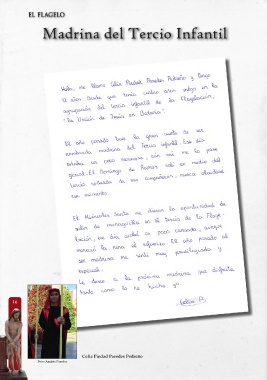 EL FLAGELO
Madrina del Tercio Infantil
Hola, me llamo Celia Piedad Paredes Pedreño y tengo
12 años. Desde que tenía cuatro años salgo en la
agrupación del tercio infantil de la Flagelación,
"La Unción de Jesús en Betania".
El año pasado tuve la gran suerte de ser
nombrada madrina del Tercio Infantil. Ese día
estaba un poco nerviosa, aún así me lo pasé
genial. El Domingo de Ramos salí en medio del
tercio rodeada de mis compañeros, nunca olvidaré
ese momento.
El Miércoles Santo me dieron la oportunidad de
salir de monaguillo en el tercio de la Flage-
lación, ese día acabé un poco cansada, aunque
mereció la pena el esfuerzo. El año pasado al
ser madrina me sentí muy privilegiada y
especial.
Le deseo a la próxima madrina que disfrute
tanto como lo he hecho yo.
Celia P.
16
Celia Piedad Paredes Pedreño